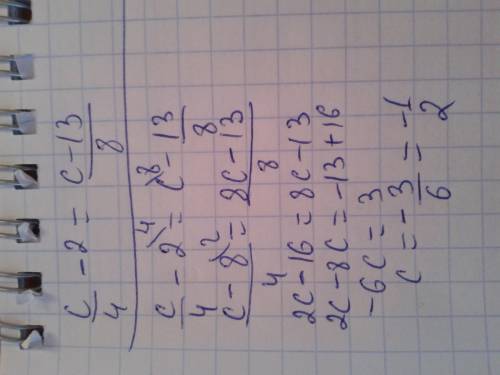 c/4 - 2 = c - 13/8
c/4 - 2\4 = c\8 - 13/8
c - 8\2/4 = 8c - 13/8
2c - 16 = 8c - 13
2c - 8c = -13 + 16
-6c = 3
c = -3/6 = -1/2